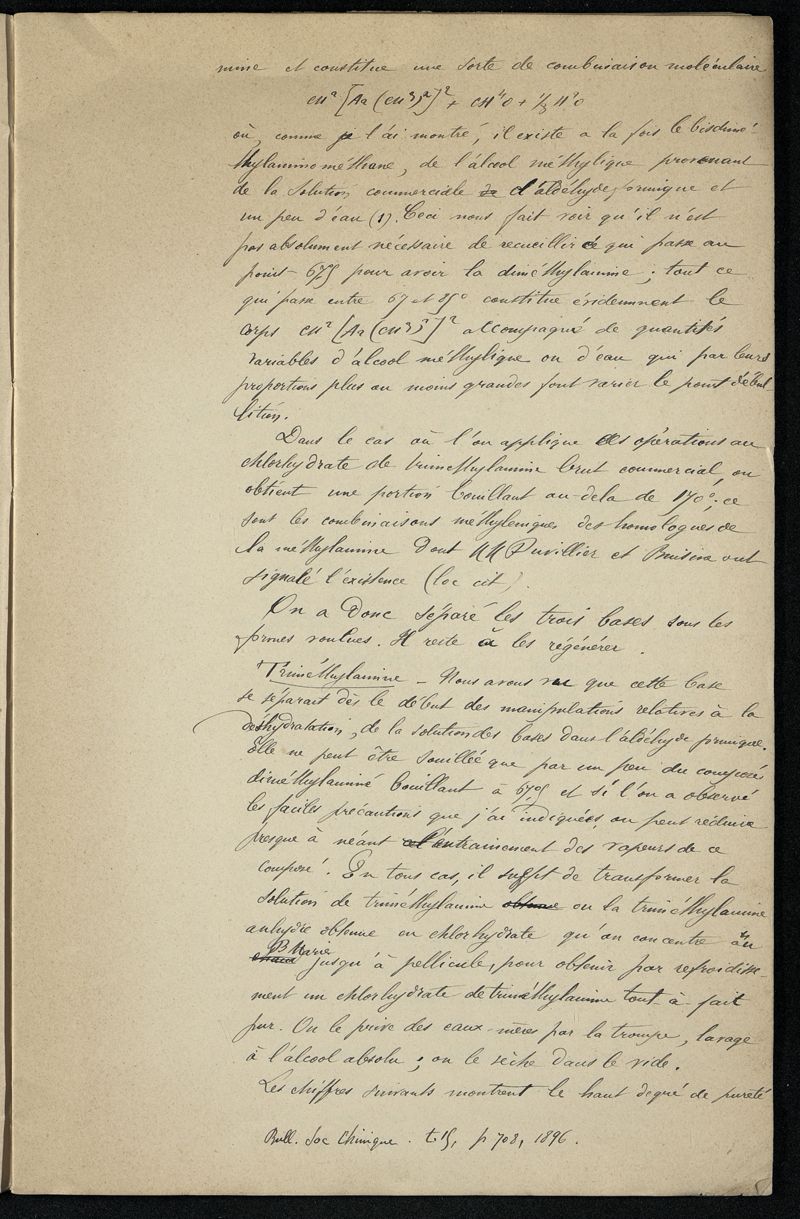 mine et constitue une sorte de combinaison moléculaire
CH² [Az (CH³)²]² + CH⁴O + ½ H²O
où, comme je l'ai montré, il existe a la fois le bisdimé-
thylaminométhane, de l'alcool méthylique provenant
de la solution commerciale de d'aldéhyde formique et
un peu d'eau (1). Ceci nous fait voir qu'il n'est
pas absolument nécessaire de recueillir ce qui passe au
point 67°5 pour avoir la diméthylamine ; tout ce
qui passe entre 67 et 85° constitue évidemment le
corps CH² [Az (CH³)²]² accompagné de quantités
variables d'alcool méthylique ou d'eau qui par leurs
proportions plus ou moins grandes font varier le point d'ébul-
lition.
Dans le cas où l'on applique ces opérations au
chlorhydrate de triméthylamine brut commercial, on
obtient une portion bouillant au-dela de 170° ; ce
sont les combinaisons méthyleniques des homologues de
la méthylamine dont MM Duvillier et Buisine ont
signalé l'existence (loc cit).
On a donc séparé les trois bases sous les
formes voulues. Il reste à les régénérer.
Triméthylamine – Nous avons vu que cette base
se séparait dès le début des manipulations relatives à la
deshydratation, de la solution des bases dans l'aldéhyde formique.
Elle ne peut être souillée que par un peu du composé
diméthylaminé bouillant a 67°5 et si l'on a observé
les faciles précautions que j'ai indiquées, on peut réduire
presque à néant l'entrainement des vapeurs de ce
composé. En tous cas, il suffit de transformer la
solution de triméthylamine obtenue ou la triméthylamine
anhydre obtenue en chlorhydrate qu'on concentre au
B Marie jusqu'à pellicule, pour obtenir par refroidisse-
ment un chlorhydrate de triméthylamine tout-à-fait
pur. On le prive des eaux-mères par la trompe, lavage
à l'alcool absolu ; on le sèche dans le vide.
Les chiffres suivants montrent le haut degré de pureté
Bull. Soc Chimique. t. 15, p 708, 1896.